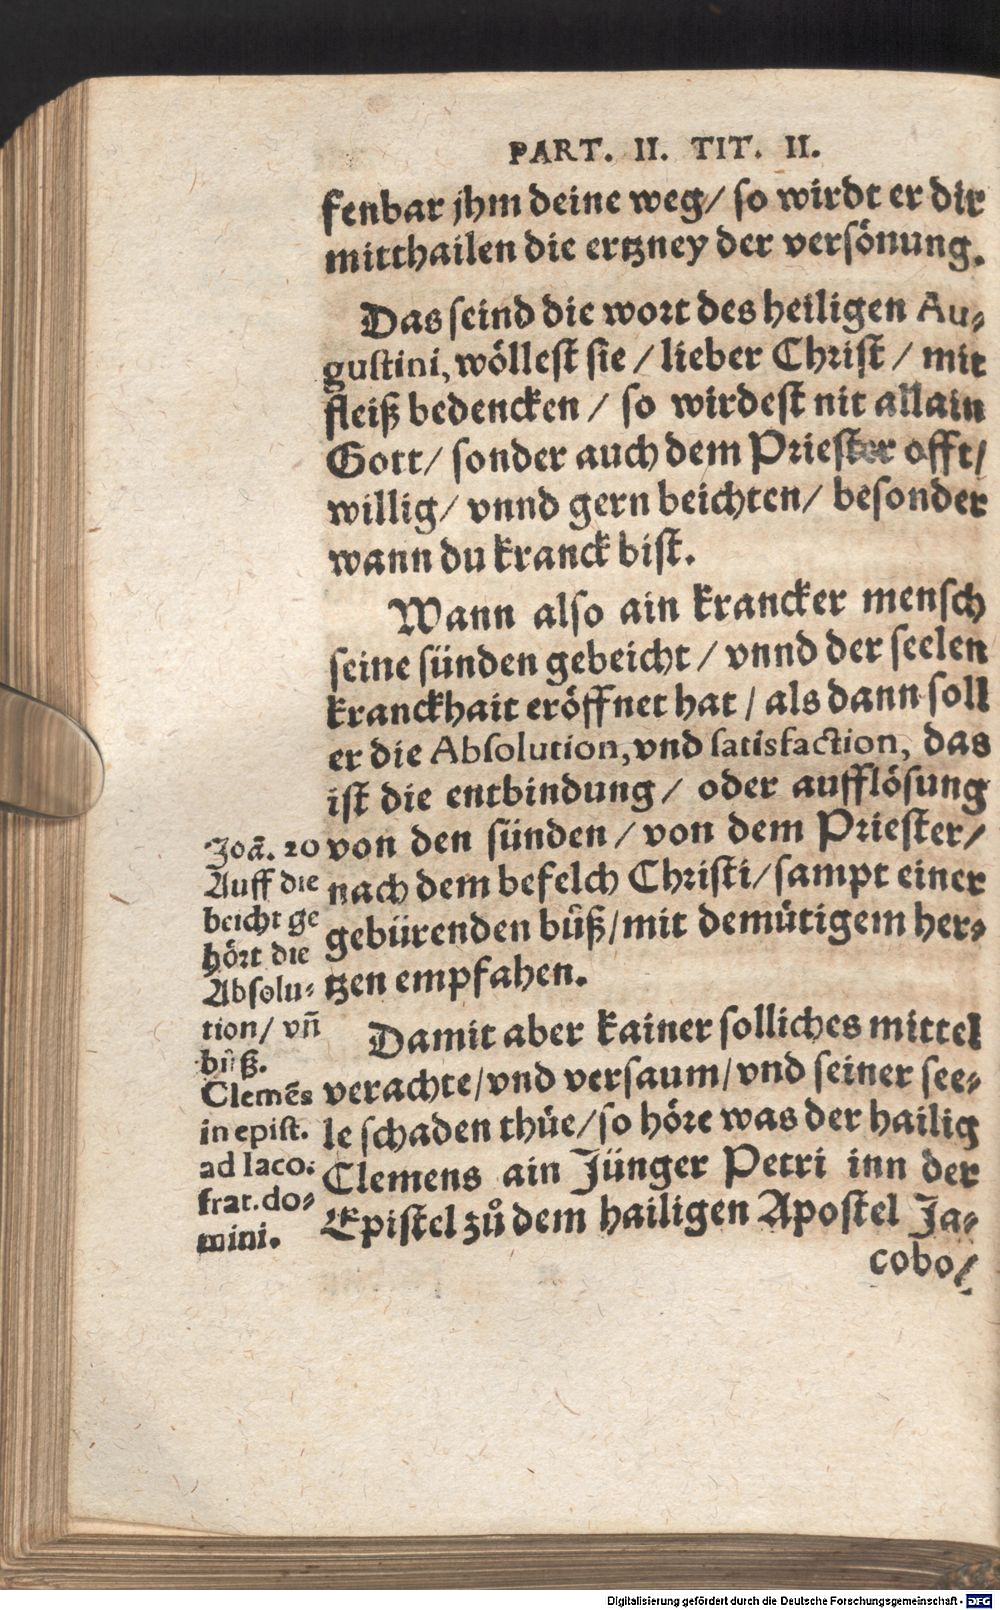 PART. II. TIT. II.
fenbar jhm deine weg/ so wirdt er dir
mitthailen die ertzney der versönung.
Das seind die wort des heiligen Au⸗
gustini, wöllest sie / lieber Christ / mit
fleiß bedencken / so wirdest nit allain
Gott/ sonder auch dem Priester offt/
willig/ vnnd gern beichten/ besonder
wann du kranck bist.
Wann also ain krancker mensch
seine sünden gebeicht / vnnd der seelen
kranckhait eröffnet hat / als dann soll
er die Absolution, vnd satisfaction, das
ist die entbindung/ oder aufflösung
von den sünden / von dem Priester/
nach dem befelch Christi/ sampt einer
gebürenden bůß/ mit demütigem her⸗
tzen empfahen.
Damit aber kainer solliches mittel
verachte/ vnd versaum/ vnd seiner see⸗
le schaden thüe/ so höre was der hailig
Clemens ain Jünger Petri inn der
Epistel zů dem hailigen Apostel Ja⸗
cobo/
Joã. 20
Auff die
beicht ge
hört die
Absolu⸗
tion/ vñ
bůß.
Clemẽs
in epist.
ad Iaco.
frat. do⸗
mini.
Digitalisierung gefördert durch die Deutsche Forschungsgemeinschaft - DFG